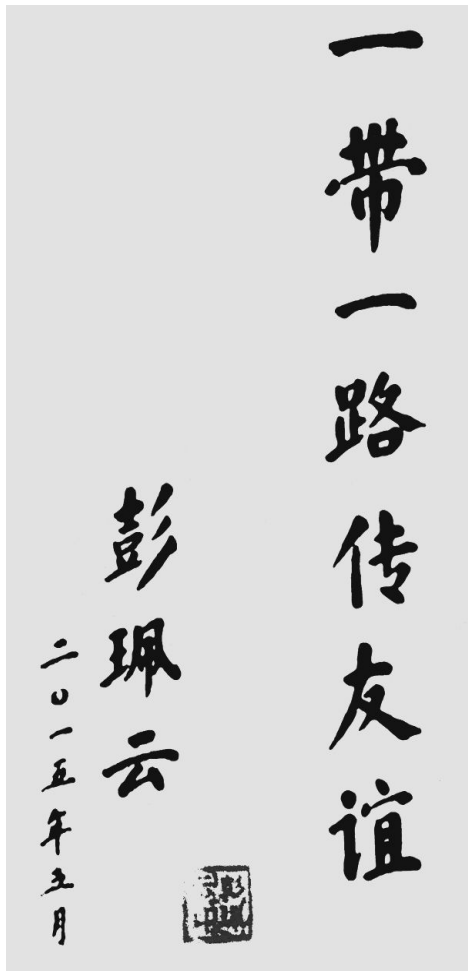 一带一路传友谊
彭珮云
二〇一五年五月